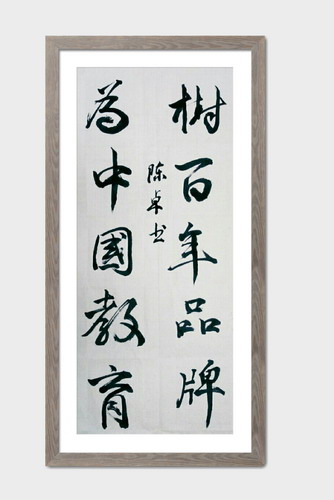 樹百年品牌
為中國教育
陈卓书